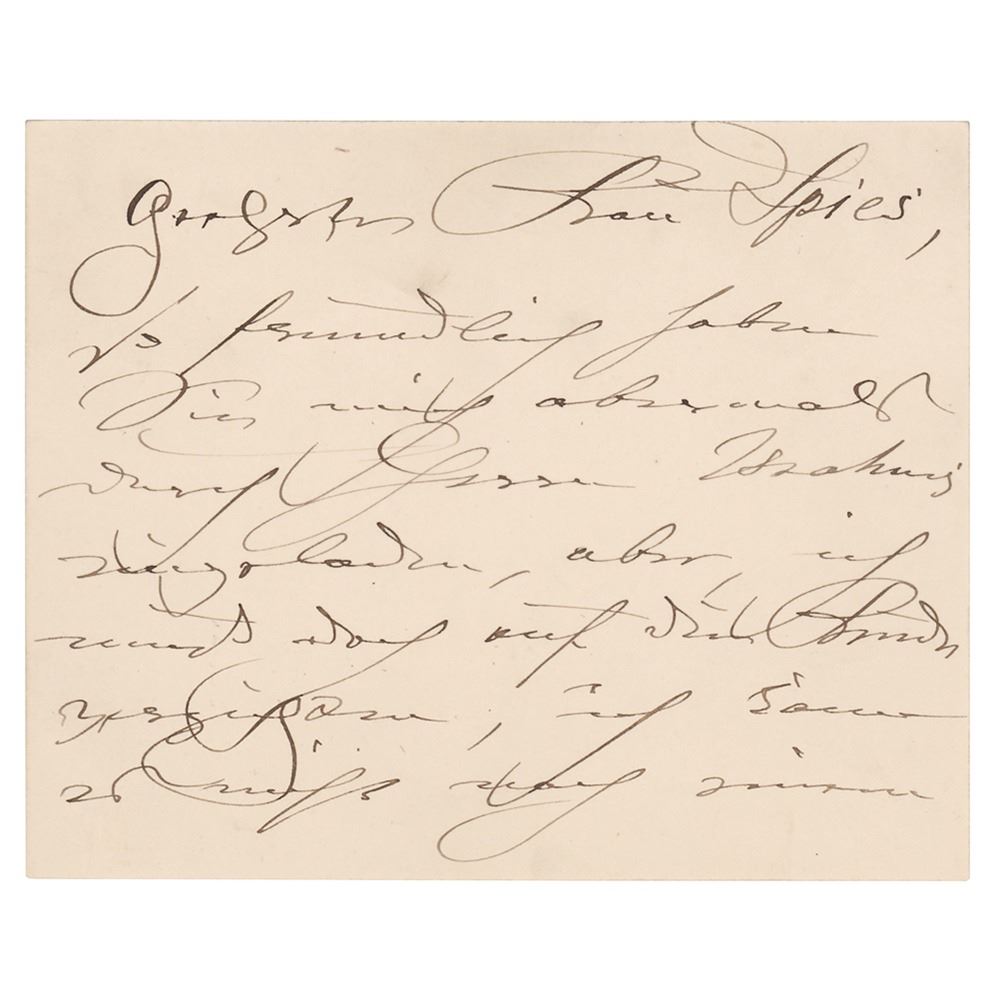 Geehrteste Frau Spies,
So freundlich haben
Sie mich abermals
durch Herrn Brahms
eingeladen, aber, ich
muß doch auf die Freude
verzichten, ich kann
es nicht nach einem